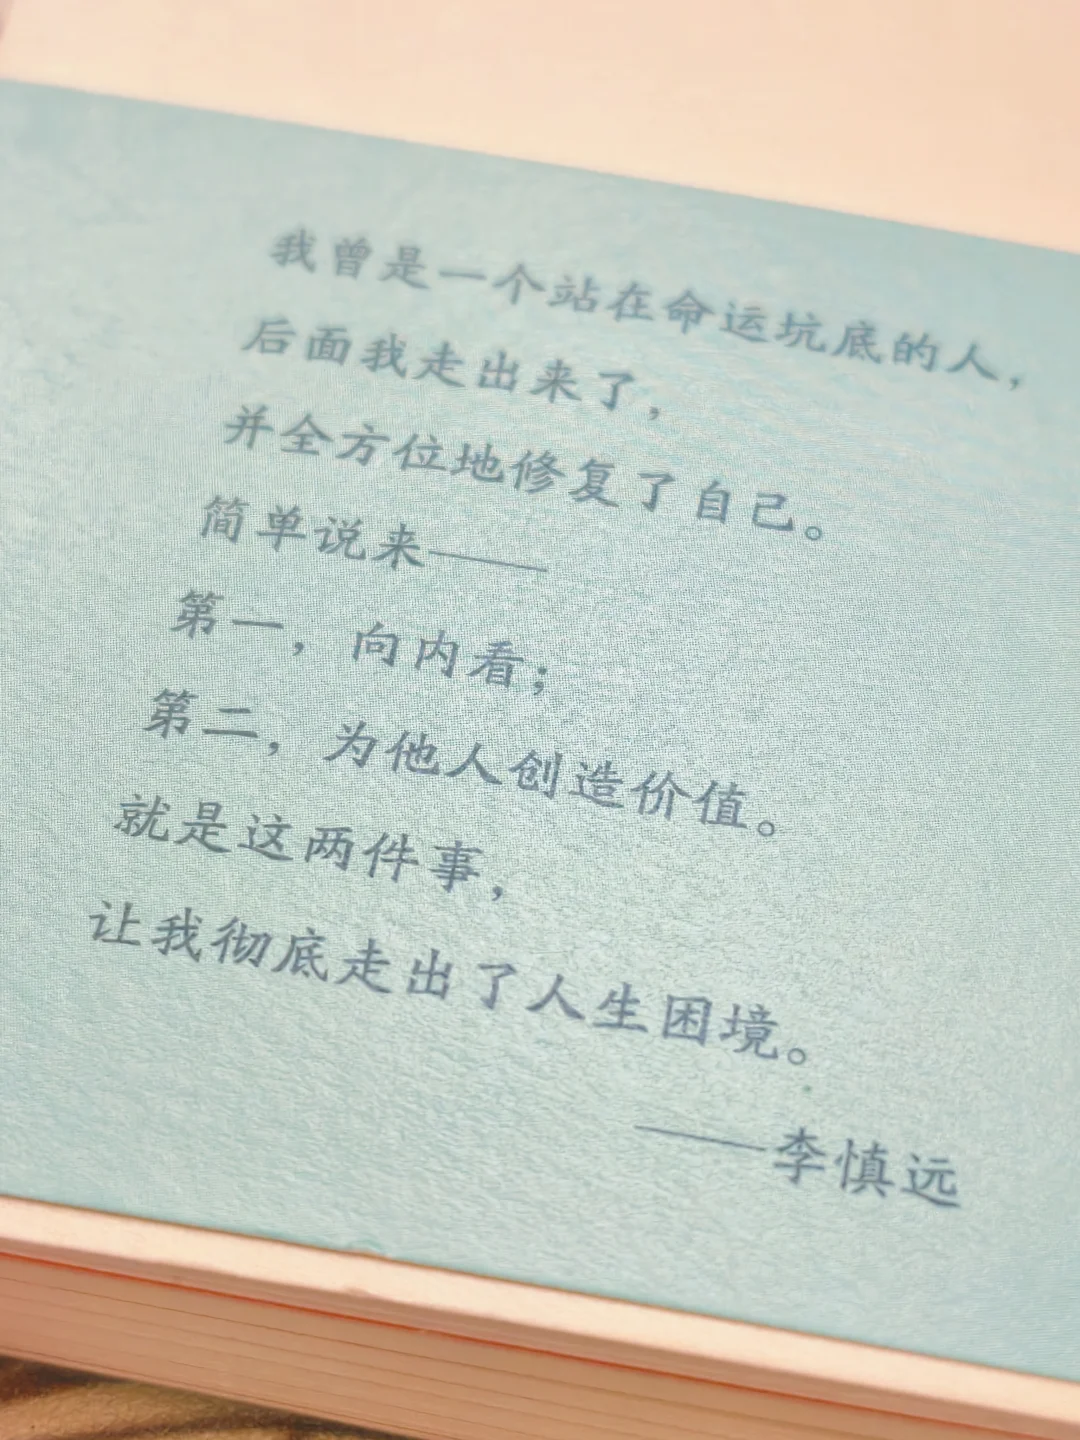 我曾是一个站在命运坑底的人，
后面我走出来了，
并全方位地修复了自己。
简单说来——
第一，向内看；
第二，为他人创造价值。
就是这两件事，
让我彻底走出了人生困境。
——李慎远